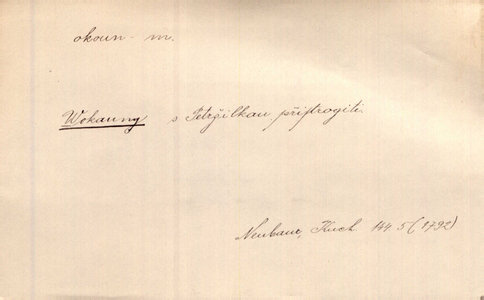 okoun - m.
Wokauny s Petržilkau přistrogiti.
Neubauer, Kuch. 144.5 (1792)